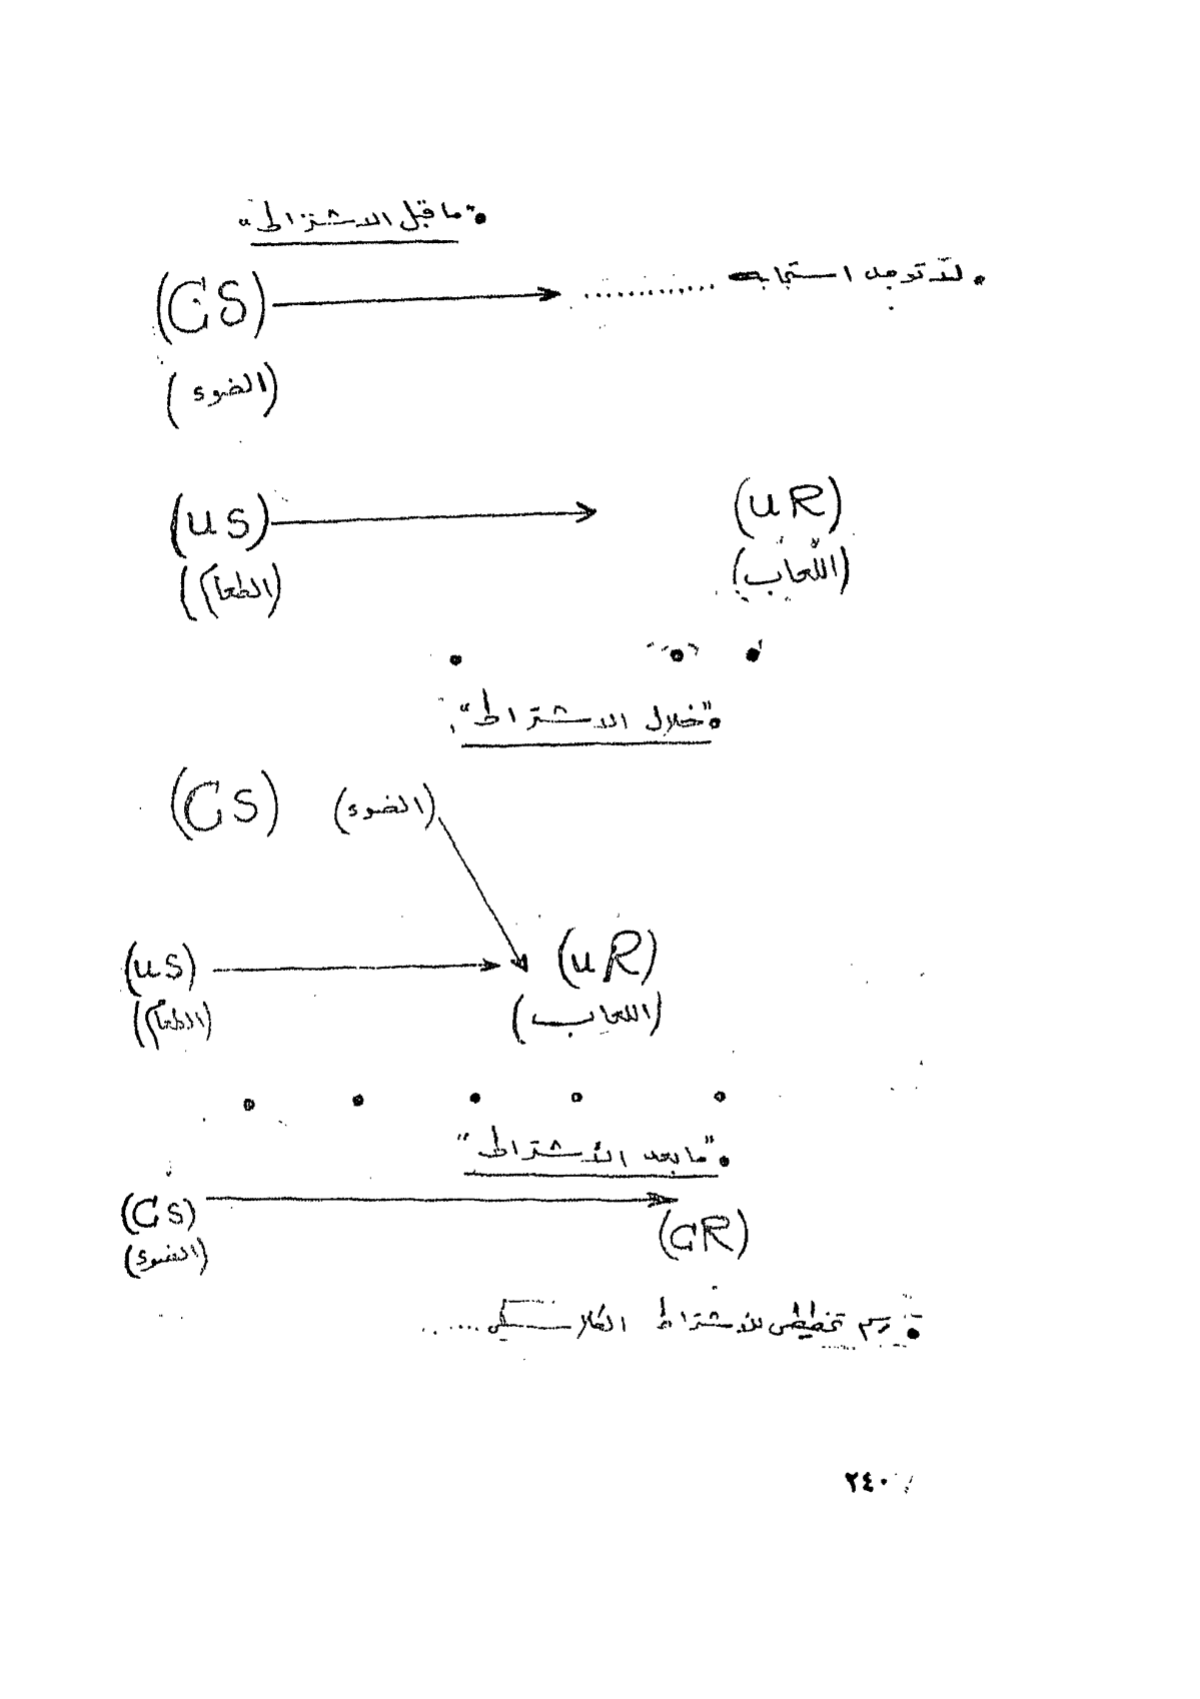 • "ما قبل الاشتراط"
(CS) ............ • لا توجد استجابه
(الضوء)
(US) (UR)
(الطعام) (اللعاب)
• "خلال الاشتراط"
(CS) (الضوء)
(US) (UR)
(الطعام) (اللعاب)
• "ما بعد الأشتراط"
(CS) (CR)
(الضوء)
• رسم تخطيطي للأشتراط الكلاسيكي ......
٢٤٠